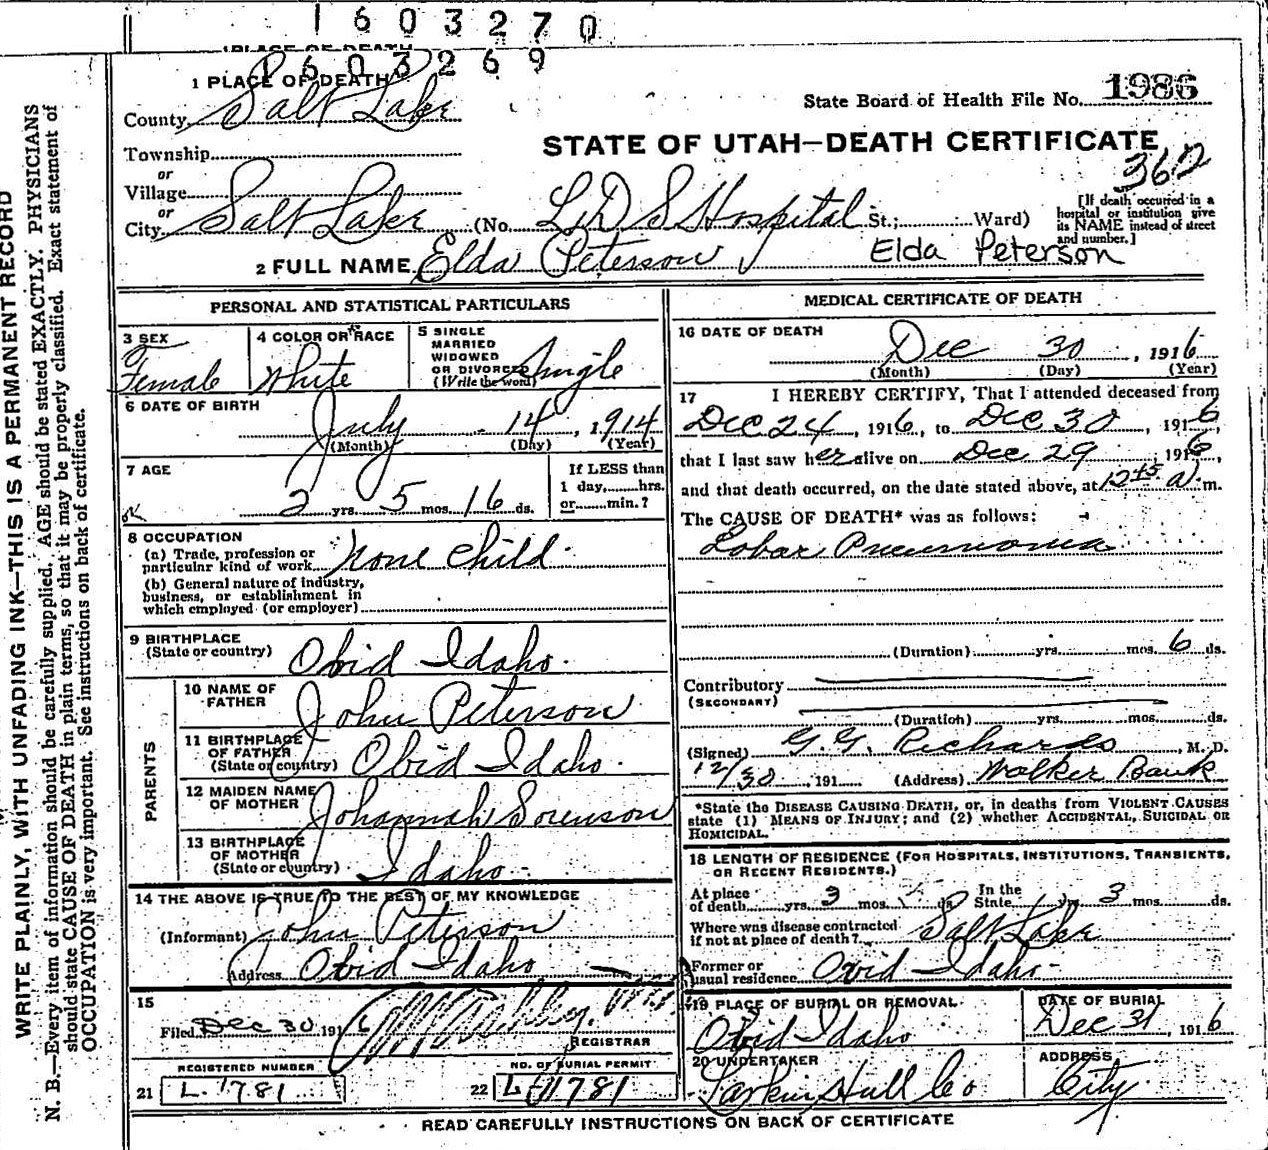 1603270
1603269
WRITE PLAINLY, WITH UNFADING INK—THIS IS A PERMANENT RECORD
N. B.—Every item of information should be carefully supplied. AGE should be stated EXACTLY. PHYSICIANS
should state CAUSE OF DEATH in plain terms, so that it may be properly classified. Exact statement of
OCCUPATION is very important. See instructions on back of certificate.
1 PLACE OF DEATH
County Salt Lake
State Board of Health File No. 1986
STATE OF UTAH—DEATH CERTIFICATE
362
Township
or
Village
or
City Salt Lake (No. L.D.S Hospital St.; Ward)
[If death occurred in a
hospital or institution give
its NAME instead of street
and number.]
2 FULL NAME Elda Peterson Elda Peterson
PERSONAL AND STATISTICAL PARTICULARS
3 SEX
Female
4 COLOR OR RACE
White
5 SINGLE
MARRIED
WIDOWED
OR DIVORCED
(Write the word) Single
6 DATE OF BIRTH
July 14, 1914
(Month) (Day) (Year)
7 AGE
2 yrs. 5 mos. 16 ds.
If LESS than
1 day, hrs.
or min.?
8 OCCUPATION
(a) Trade, profession or
particular kind of work None Child
(b) General nature of industry,
business, or establishment in
which employed (or employer)
9 BIRTHPLACE
(State or country) Ovid Idaho.
PARENTS
10 NAME OF
FATHER John Peterson
11 BIRTHPLACE
OF FATHER
(State or country) Ovid Idaho.
12 MAIDEN NAME
OF MOTHER Johannah Sorenson
13 BIRTHPLACE
OF MOTHER
(State or country) Idaho
14 THE ABOVE IS TRUE TO THE BEST OF MY KNOWLEDGE
(Informant) John Peterson
Address Ovid Idaho
15
Filed Dec 30 1916
REGISTRAR
REGISTERED NUMBER
21 L. 1781
NO. OF BURIAL PERMIT
22 L 1781
MEDICAL CERTIFICATE OF DEATH
16 DATE OF DEATH
Dec 30, 1916
(Month) (Day) (Year)
17 I HEREBY CERTIFY, That I attended deceased from
Dec 24, 1916, to Dec 30, 1916,
that I last saw her alive on Dec 29, 1916,
and that death occurred, on the date stated above, at 12 45 a.m.
The CAUSE OF DEATH* was as follows:
Lobar Pneumonia
(Duration) yrs. mos. 6 ds.
Contributory
(SECONDARY)
(Duration) yrs. mos. ds.
(Signed) G.G. Richards, M. D.
12/30, 191 (Address) Walker Bank
*State the DISEASE CAUSING DEATH, or, in deaths from VIOLENT CAUSES
state (1) MEANS OF INJURY; and (2) whether ACCIDENTAL, SUICIDAL OR
HOMICIDAL.
18 LENGTH OF RESIDENCE (FOR HOSPITALS, INSTITUTIONS, TRANSIENTS,
OR RECENT RESIDENTS.)
At place
of death yrs. 3 mos. ds.
In the
State yrs. 3 mos. ds.
Where was disease contracted
if not at place of death? Salt Lake
Former or
usual residence Ovid Idaho
19 PLACE OF BURIAL OR REMOVAL
Ovid Idaho
DATE OF BURIAL
Dec 31, 1916
20 UNDERTAKER
Larkin Hull Co
ADDRESS
City
READ CAREFULLY INSTRUCTIONS ON BACK OF CERTIFICATE